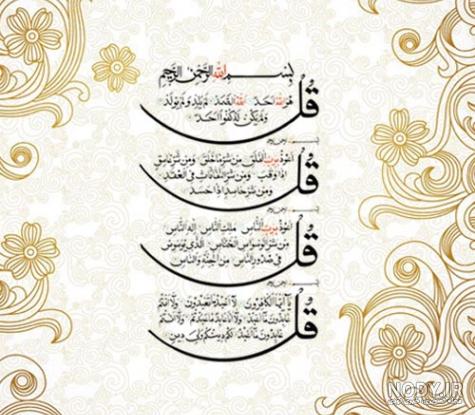 بسم الله الرحمن الرحیم
قل
هو الله احد الله الصمد لم یلد ولم یولد
ولم یکن له کفوا احد
قل
اعوذ برب الفلق من شر ما خلق ومن شر غاسق
اذا وقب ومن شر النفاثات فی العقد
ومن شر حاسد اذا حسد
قل
اعوذ برب الناس ملک الناس اله الناس
من شر الوسواس الخناس الذی یوسوس
فی صدور الناس من الجنة والناس
قل
یا ایها الکافرون لا اعبد ما تعبدون ولا انتم
عابدون ما اعبد ولا انا عابد ما عبدتم ولا انتم
عابدون ما اعبد لکم دینکم ولی دین
NODY.IR